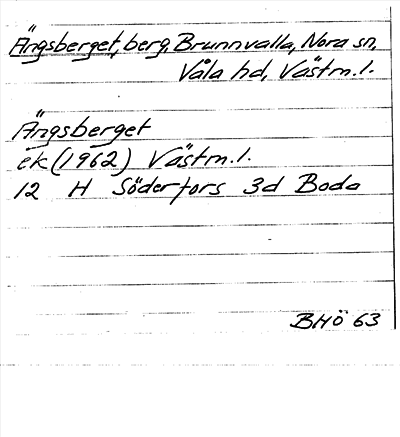 Ängsberget, berg, Brunnvalla, Nora sn,
Våla hd, Västm.l.
Ängsberget
ek (1962) Västm.l.
12 H Söderfors 3d Boda
BHÖ 63